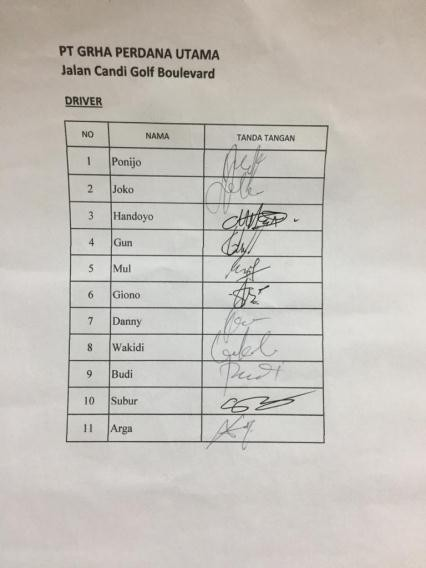 PT GRHA PERDANA UTAMA
Jalan Candi Golf Boulevard
DRIVER
NO NAMA TANDA TANGAN
1 Ponijo
2 Joko
3 Handoyo
4 Gun
5 Mul
6 Giono
7 Danny
8 Wakidi
9 Budi
10 Subur
11 Arga